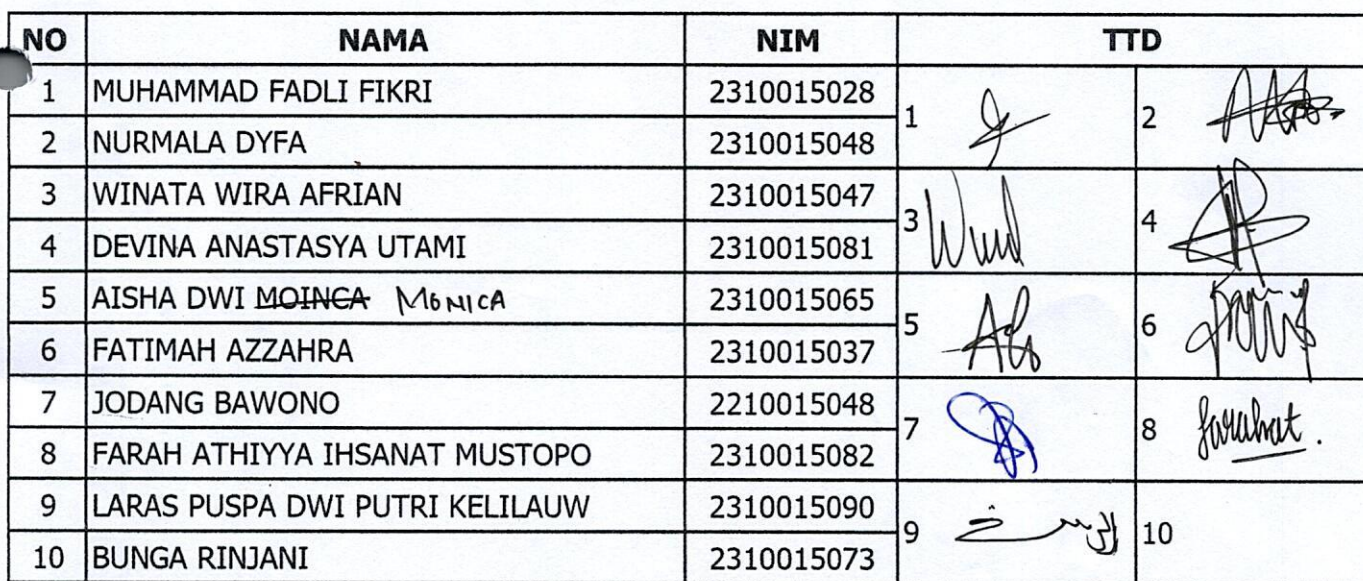 NO NAMA NIM TTD
1 MUHAMMAD FADLI FIKRI 2310015028
1 2
2 NURMALA DYFA 2310015048
3 WINATA WIRA AFRIAN 2310015047
3 4
4 DEVINA ANASTASYA UTAMI 2310015081
5 AISHA DWI MOINCA MONICA 2310015065
5 6
6 FATIMAH AZZAHRA 2310015037
7 JODANG BAWONO 2210015048
7 8 farahat.
8 FARAH ATHIYYA IHSANAT MUSTOPO 2310015082
9 LARAS PUSPA DWI PUTRI KELILAUW 2310015090
9 10
10 BUNGA RINJANI 2310015073